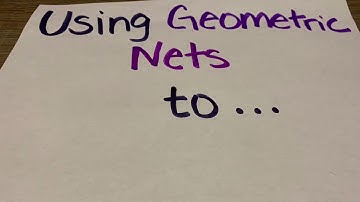 Using Geometric
Nets
to ...